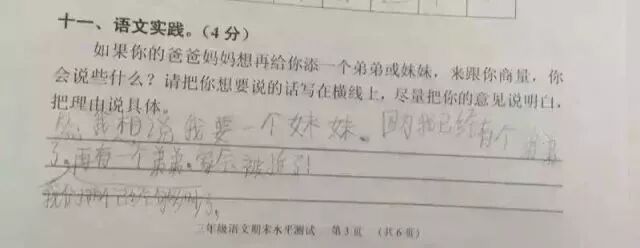 十一、语文实践。(4分)
如果你的爸爸妈妈想再给你添一个弟弟或妹妹，来跟你商量，你
会说些什么？请把你想要说的话写在横线上，尽量把你的意见说明白，
把理由说具体。
我想说我要一个妹妹。因为我已经有个弟弟
了。再有一个弟弟，家会被拆了！
我们两个已经
三年级语文期末水平测试 第3页 (共6页)